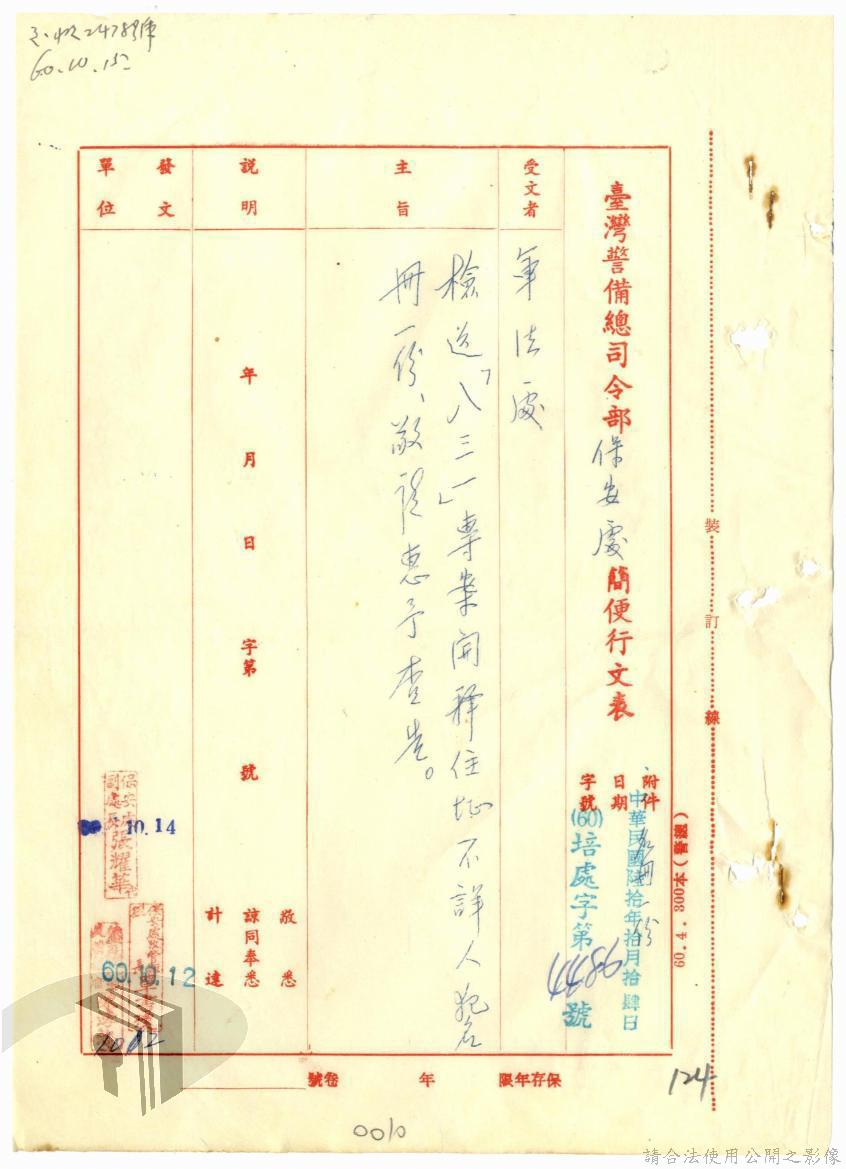 60.10.15
臺灣警備總司令部保安處簡便行文表
附件
名冊一份
日期
中華民國陸拾年拾月拾肆日
字號
(60)培處字第4486號
受文者
軍法處
主旨
檢送「八三一」專案開釋住址不詳人犯名
冊一份、敬請惠予查告。
說明
年月日字第號
敬悉
諒同奉悉
計達
發文
單位
保安處
副處長張耀華
10.14
60.10.12
10/12
裝訂線
60.4.300本(普通)
保存年限
年
卷號
124
0010
請合法使用公開之影像